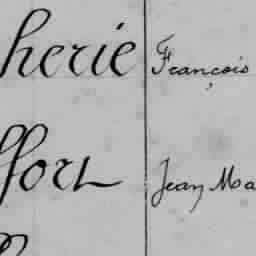 herie François
ffort Jean Ma